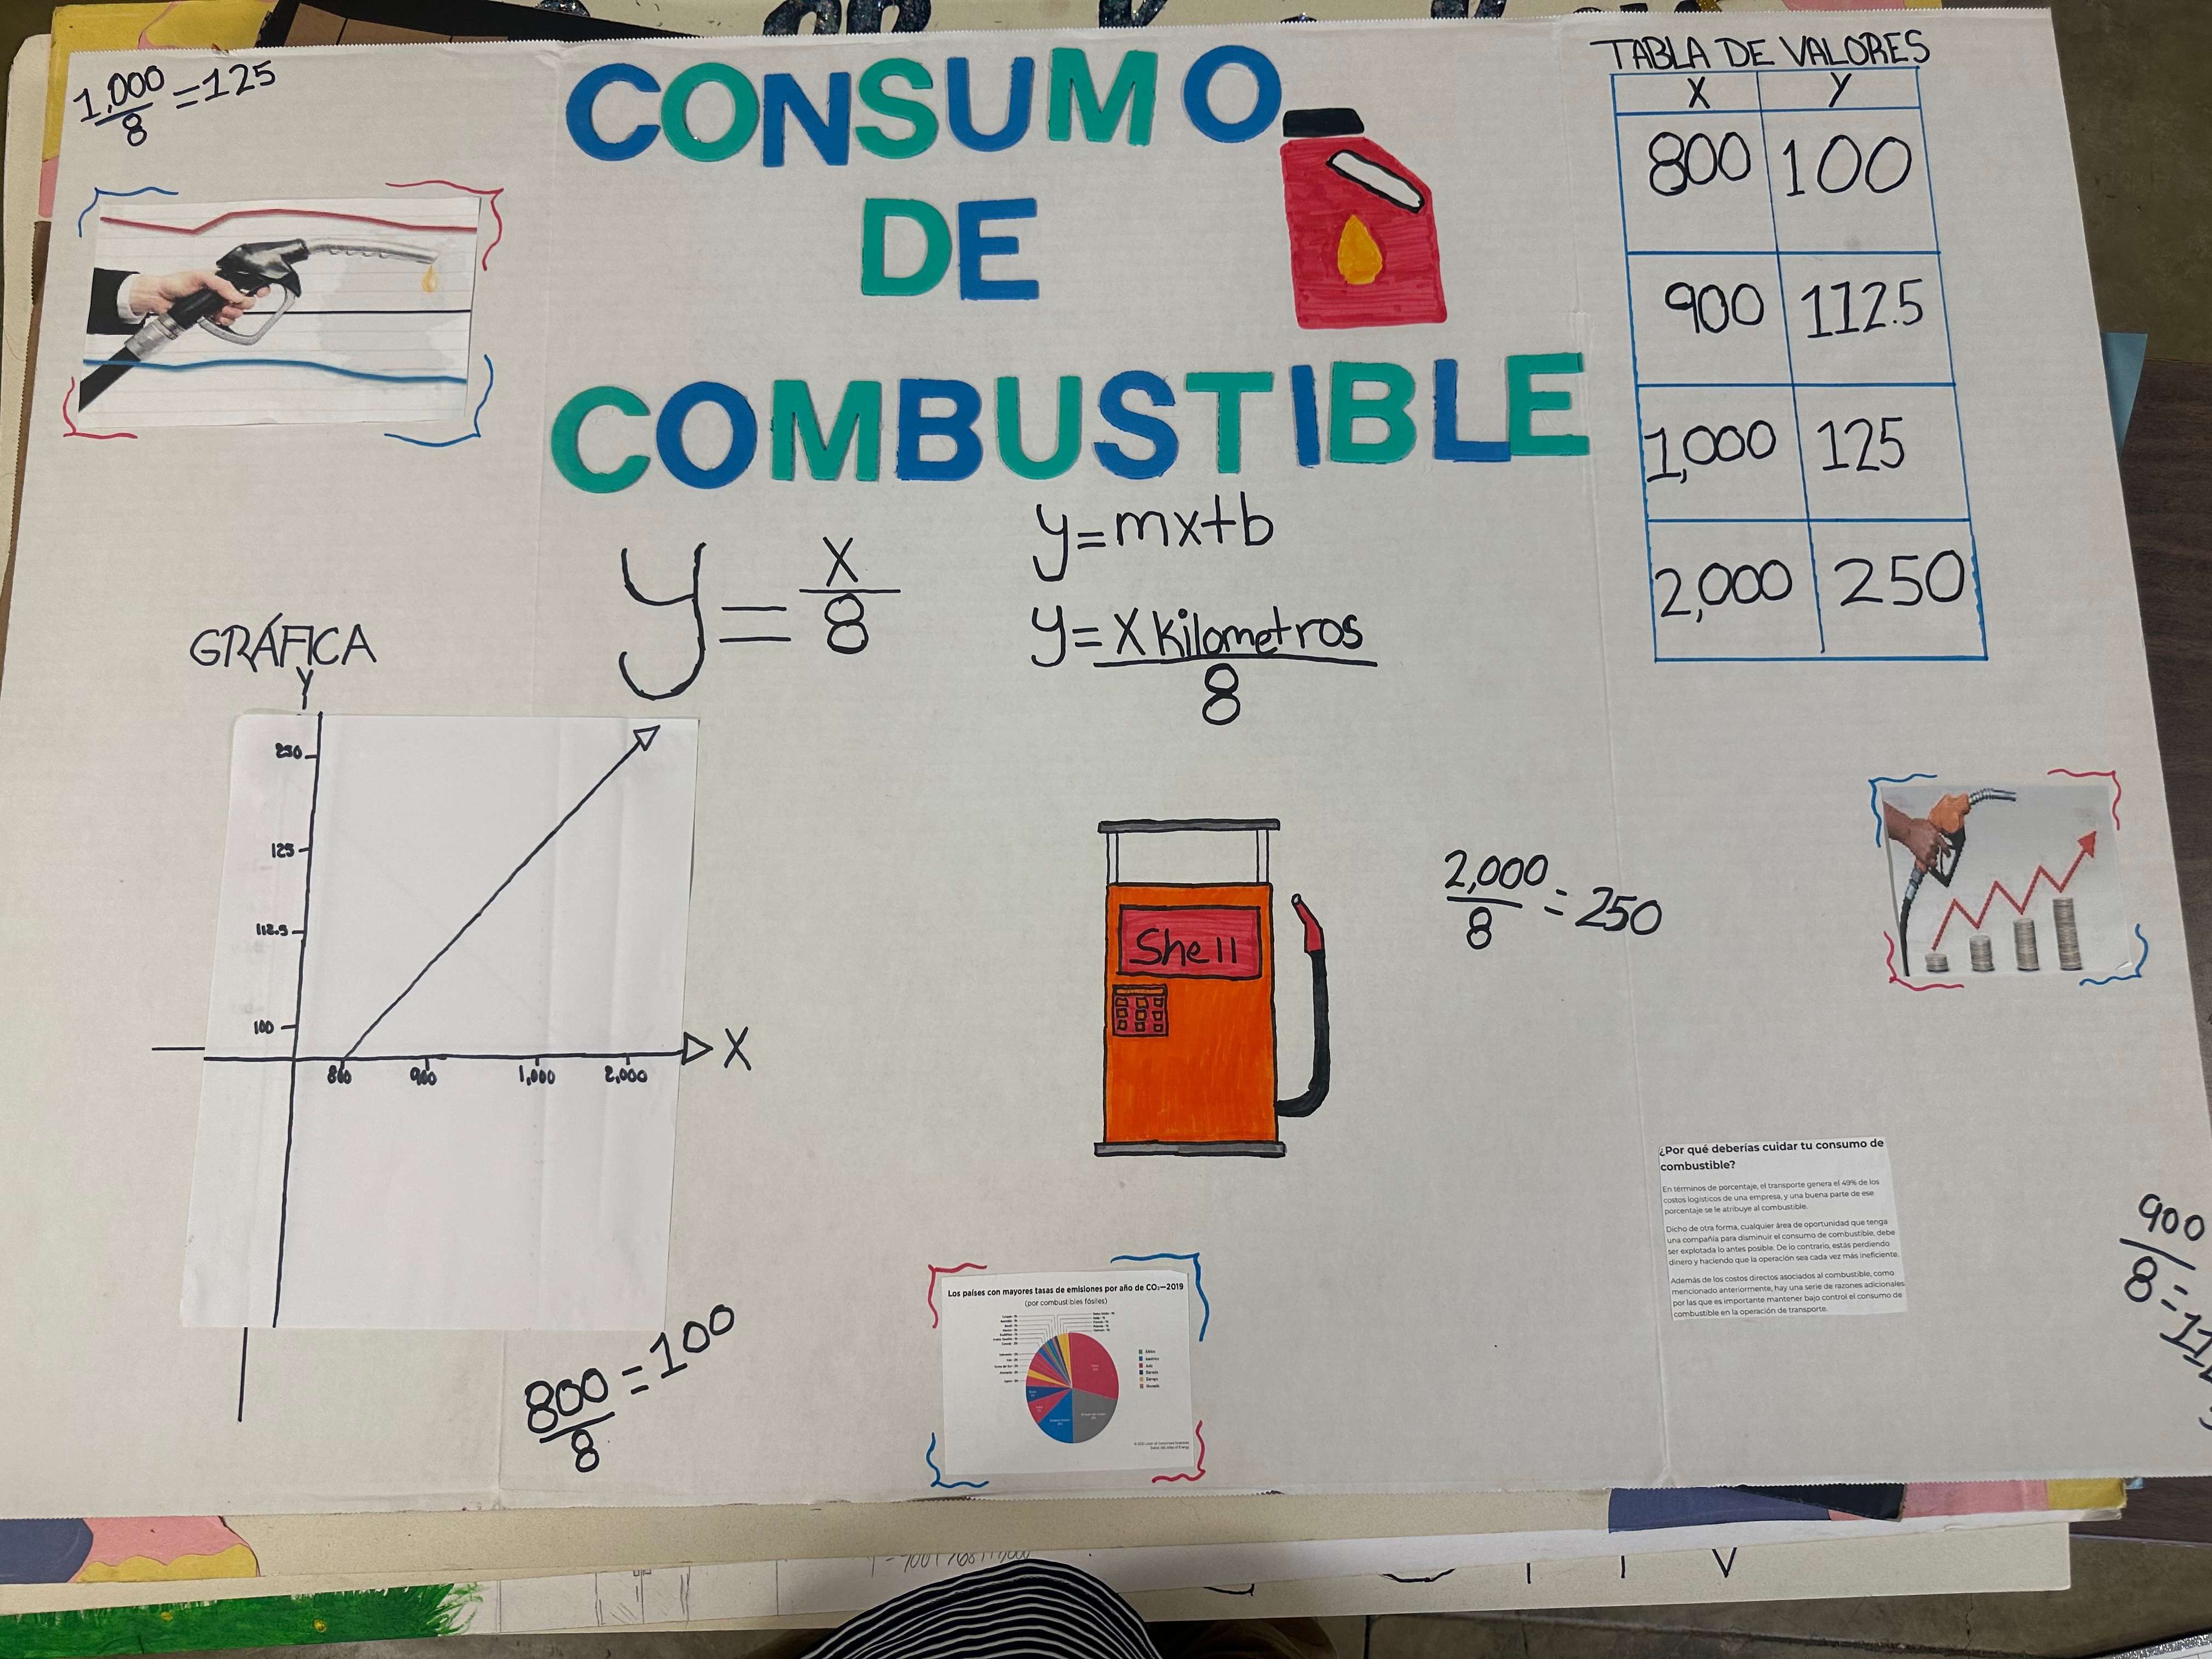 1,000
8
=125
CONSUMO
DE
COMBUSTIBLE
TABLA DE VALORES
X Y
800 100
900 112.5
1,000 125
2,000 250
y=mx+b
y= x
8
y= x kilometros
8
GRÁFICA
Y
250
125
112.5
100
X
800 900 1,000 2,000
Shell
2,000
8
=250
800
8
=100
900
8
=11
¿Por qué deberías cuidar tu consumo de
combustible?
En términos de porcentaje, el transporte genera el 49% de los
costos logísticos de una empresa, y una buena parte de ese
porcentaje se le atribuye al combustible.
Dicho de otra forma, cualquier área de oportunidad que tenga
una compañía para disminuir el consumo de combustible, debe
ser explotada lo antes posible. De lo contrario, estás perdiendo
dinero y haciendo que la operación sea cada vez más ineficiente.
Además de los costos directos asociados al combustible, como
mencionado anteriormente, hay una serie de razones adicionales
por las que es importante mantener bajo control el consumo de
combustible en la operación de transporte.
Los países con mayores tasas de emisiones por año de CO₂—2019
(por combustibles fósiles)